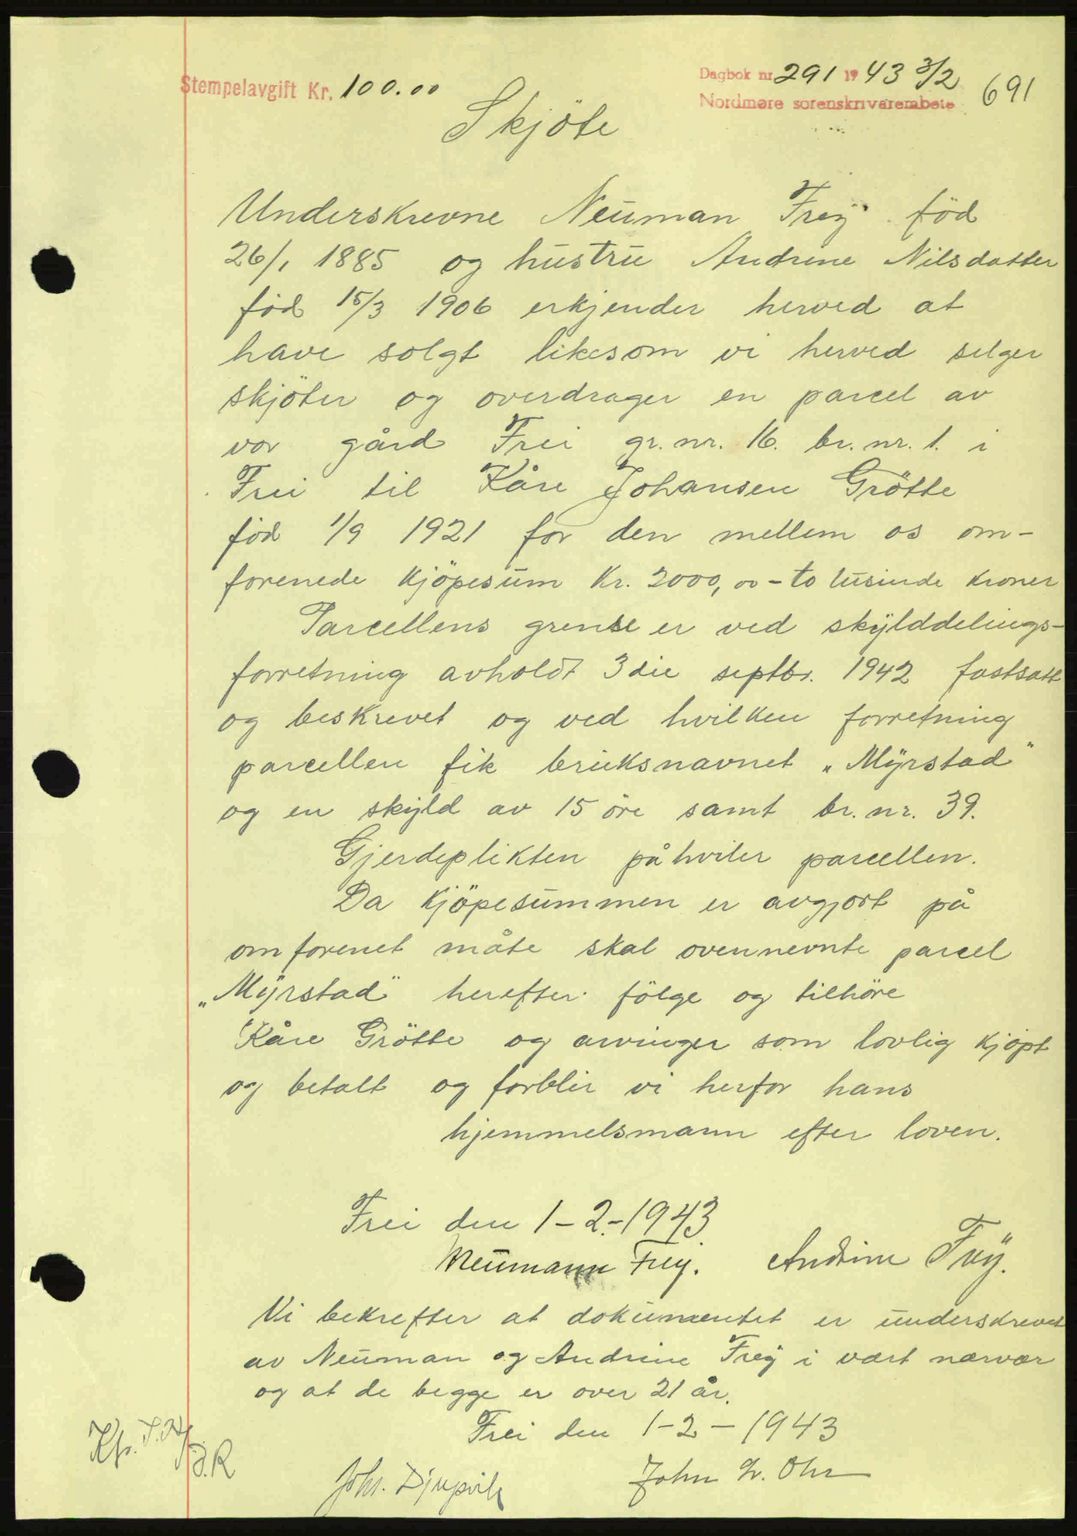 Stempelavgift Kr. 100.00
Dagbok nr. 291 1943 3/2
Nordmøre sorenskriverembete
691
Skjöte
Underskrevne Neuman Frey född
26/1 1885 og hustru Andrine Nilsdatter
fød 15/3 1906 erkjender herved at
have solgt likesom vi herved selger
skjöter og overdrager en parcel av
vor gård Frei gr. nr. 16. br. nr. 1. i
Frei til Kåre Johansen Grötte
fød 1/9 1921 for den mellem os om-
forenede kjöpesum Kr. 2000,00 - to tusinde kroner
Parcellens grense er ved skylddelings-
forretning avholdt 3die septbr. 1942 fastsatt
og beskrevet og ved hvilken forretning
parcellen fik bruksnavnet "Myrstad"
og en skyld av 15 öre samt br. nr. 39.
Gjerdeplikten påhviler parcellen.
Da kjöpesummen er avgjort på
omforenet måte skal ovennevnte parcel
"Myrstad" herefter fölge og tilhöre
Kåre Grötte og arvinger som lovlig kjöpt
og betalt og forblir vi herfor hans
hjemmelsmann efter loven.
Frei den 1-2-1943.
Neumann Frey. Andrine Frey.
Vi bekrefter at dokumentet er underskrevet
av Neuman og Andrine Frey i vårt nærvær
og at de begge er over 21 år.
Frei den 1-2-1943
Joh. Djupvik John L. Ohr